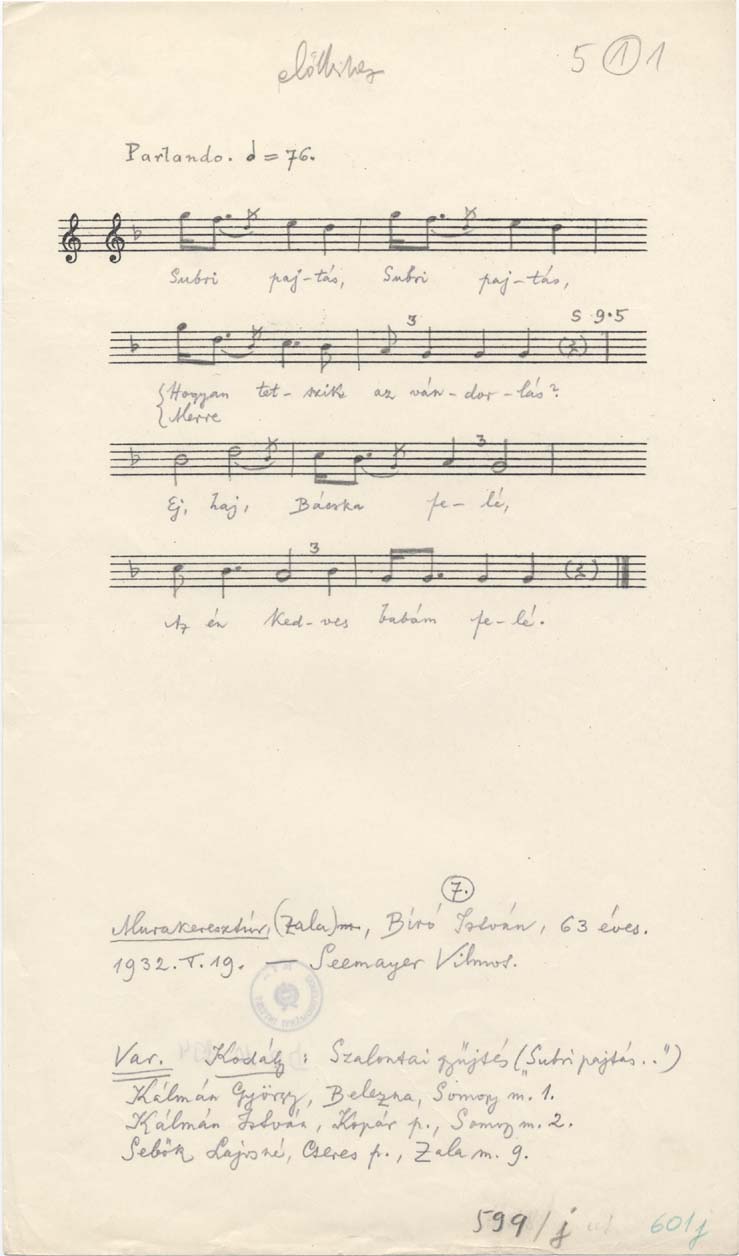 5 ① 1
Parlando. = 76.
Subri paj-tás, Subri paj-tás,
3
5 9.5
{Hogyan tet-szik az ván-dor-lás?
{Merre
3
Ej, haj, Bácska fe-lé,
3
Az én ked-ves babám fe-lé.
7.
Murakeresztúr, (Zala) m., Bíró István, 63 éves.
1932. I. 19. — Seemayer Vilmos.
Var. Kodály: Szalontai gyűjtés ("Subri pajtás..")
Kálmán György, Belezna, Somogy m. 1.
Kálmán István, Kopár p., Somogy m. 2.
Sebők Lajosné, Cseres p., Zala m. 9.
599/j 601j